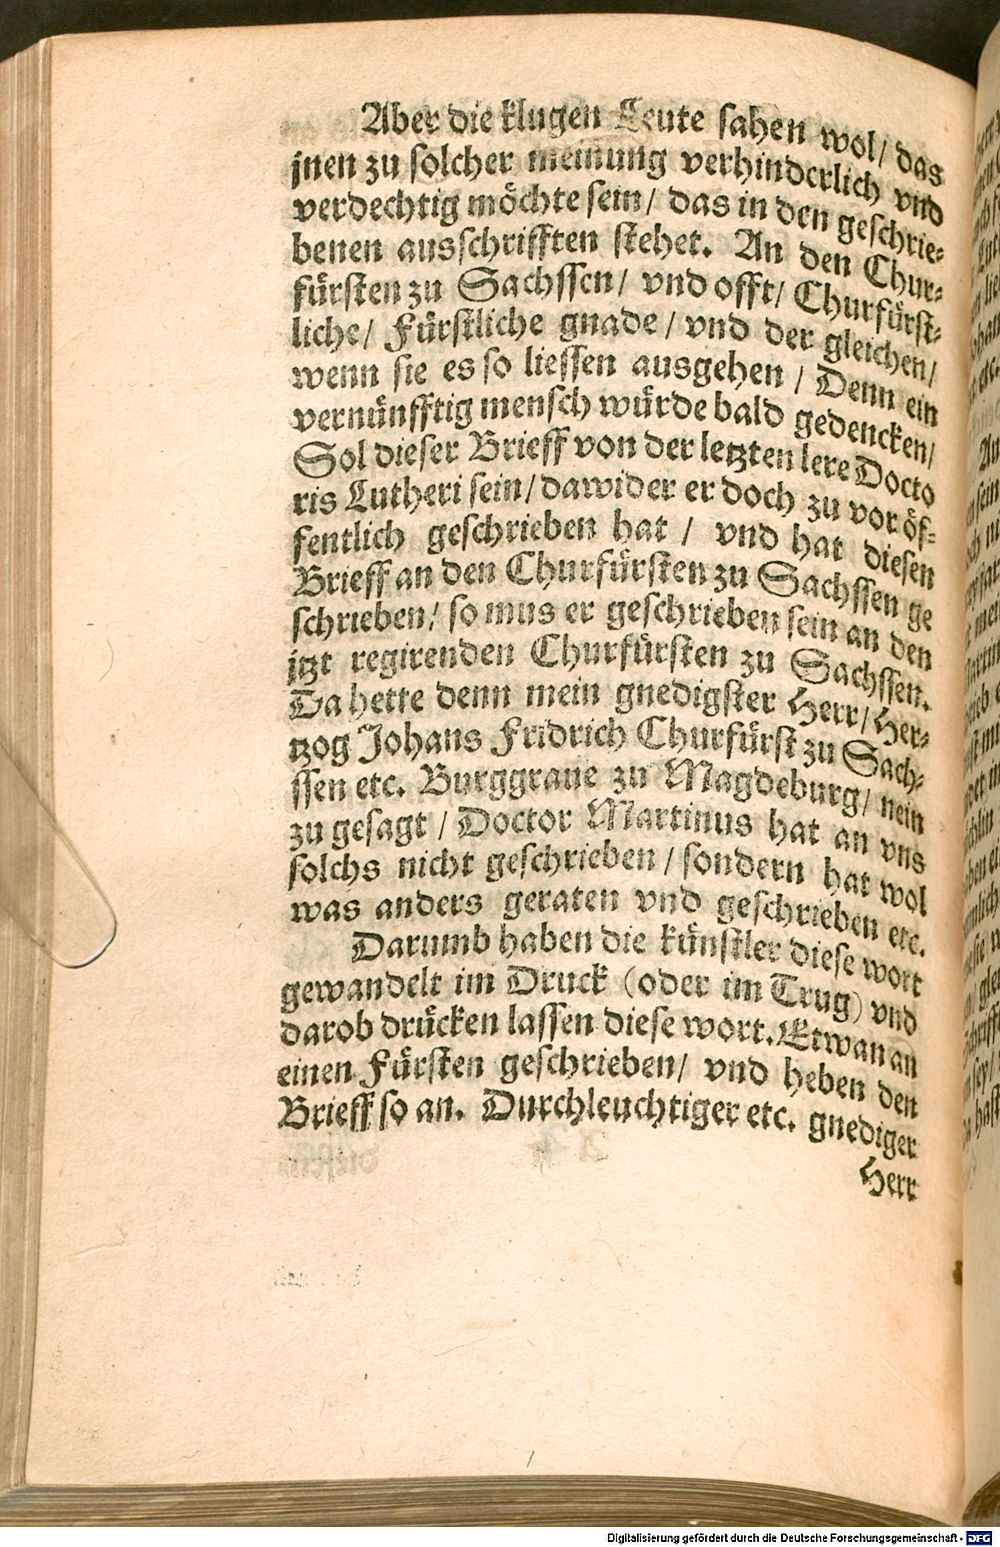 Aber die klugen Leute sahen wol/ das
jnen zu solcher meinung verhinderlich vnd
verdechtig möchte sein/ das in den geschrie-
benen ausschrifften stehet. An den Chur-
fürsten zu Sachssen/ vnd offt/ Churfürst-
liche/ Fürstliche gnade/ vnd der gleichen/
wenn sie es so liessen ausgehen/ Denn ein
vernünfftig mensch würde bald gedencken/
Sol dieser Brieff von der letzten lere Docto
ris Lutheri sein/ dawider er doch zu vor öf-
fentlich geschrieben hat/ vnd hat diesen
Brieff an den Churfürsten zu Sachssen ge
schrieben/ so mus er geschrieben sein an den
jtzt regirenden Churfürsten zu Sachssen.
Da hette denn mein gnedigster Herr/ Her-
tzog Johans Fridrich Churfürst zu Sach-
ssen etc. Burggraue zu Magdeburg/ nein
zu gesagt/ Doctor Martinus hat an vns
solchs nicht geschrieben/ sondern hat wol
was anders geraten vnd geschrieben etc.
Darumb haben die künstler diese wort
gewandelt im Druck (oder im Trug) vnd
darob drücken lassen diese wort. Etwan an
einen Fürsten geschrieben/ vnd heben den
Brieff so an. Durchleuchtiger etc. gnediger
Herr
Digitalisierung gefördert durch die Deutsche Forschungsgemeinschaft - DFG